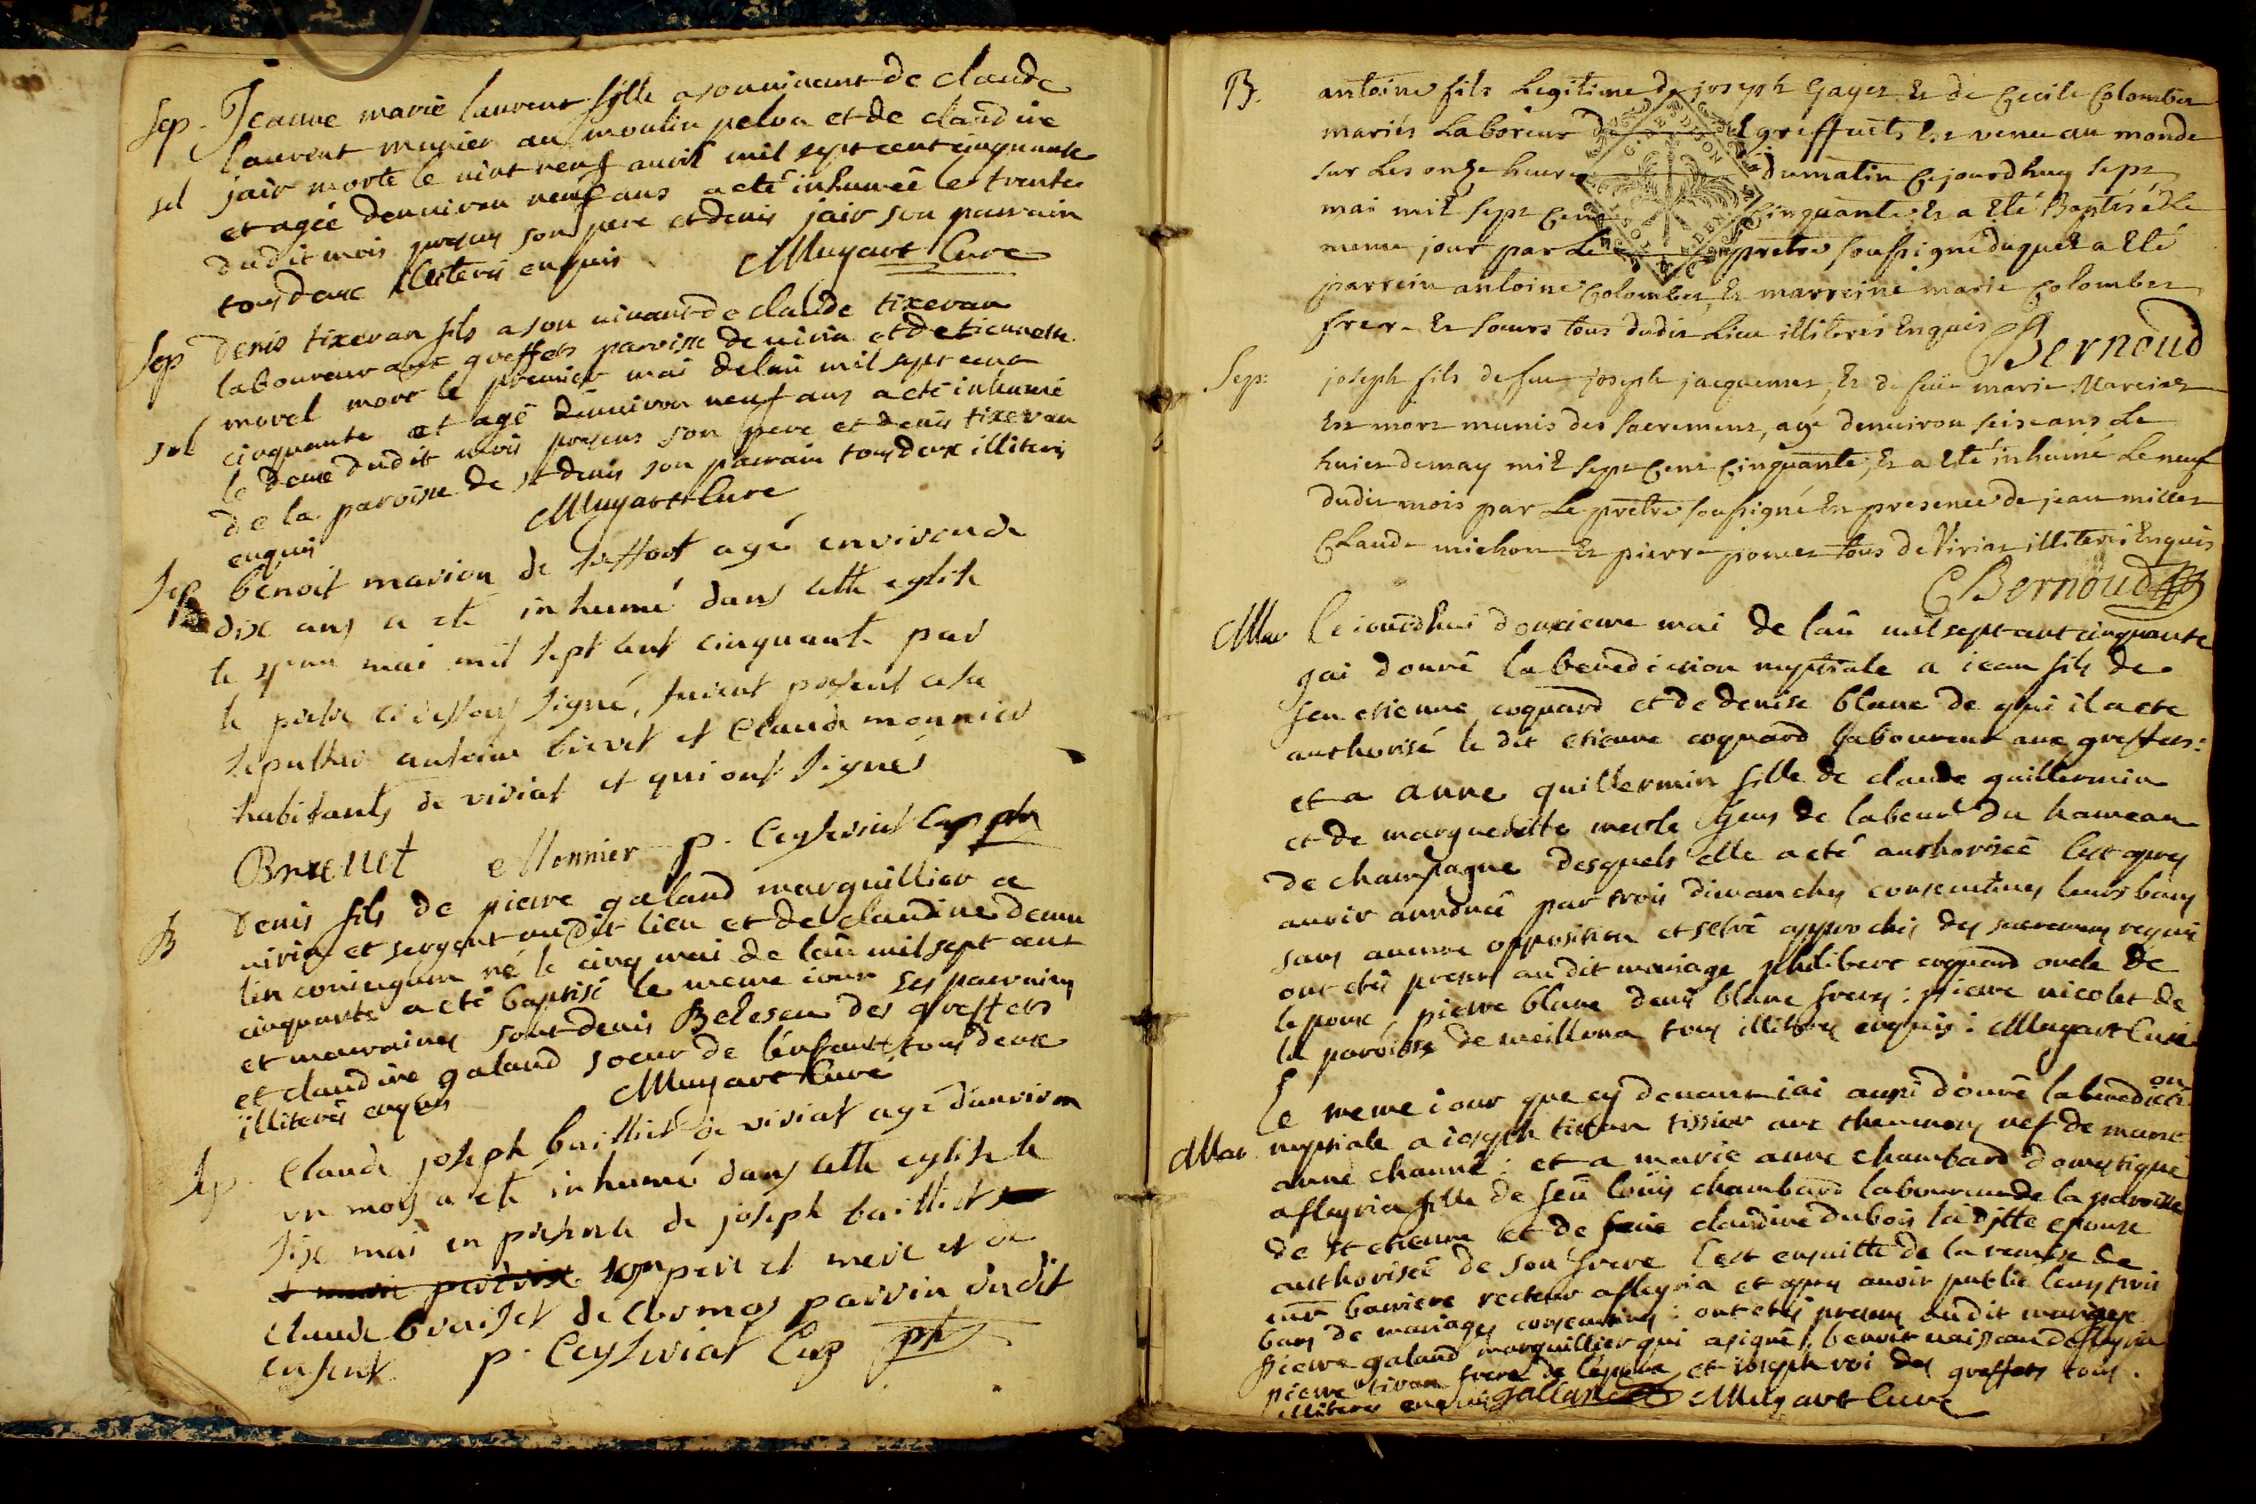 Sep. Jeanne marie laurent fille a son vivant de claude
laurent munier au moulin pelou et de claudine
sel jair morte le vint neuf avril mil sept cent cinquante
et agée denviron neuf ans a eté inhumée le trente
dudit mois presens son pere et denis jair son parrain
tous deux illiteris enquis Mugart Curé
Sep Denis tixeran fils a son vivant de claude tixeran
laboureur aux greffets paroisse de viria et detiennette
morel mort le premier mai de lan mil sept cent
sel cinquante et agé denviron neuf ans a eté inhumé
le deux dudit mois presens son pere et denis tixeran
de la paroisse de st denis son parrain tous deux illiteris
enquis Mugart Curé
Sep benoit marion de treffort agé environ de
dix ans a eté inhumé dans cette eglise
le mai mil sept cent cinquante par
le pretre ci dessous signé, furent present a la
sepulture antoine et Claude monnier
habitants de viriat et qui ont signés
Monnier p. Ceyseriat
B Denis fils de pierre galand marguillier a
viria et sergent audit lieu et de claudine
né le cinq mai de lan mil sept cent
cinquante a eté baptisé le meme iour ses parrains
et marraines sont denis Belesen des greffets
et claudine galand soeur de lenfant tous deux
illiterés enquis Mugart Curé
Sep. Claude joseph baillet de viriat agé denviron
un mois a eté inhumé dans cette eglise le
six mai en presence de joseph baillet
son pere et mere et de
claude brasset de parrin du dit
enfent p. Ceyseriat
B. antoine fils Legitime de joseph Gayet Et de Cecile Colomber
mariés Laboreur greffets Est venu au monde
sur Les onze heures du matin Cejourdhuy sept
mai mil sept Cent Cinquante Et a Eté Baptisé Le
meme jour par Le pretre soussigné duquel a Eté
parrein antoine Colomber, Et marreine marie Colomber
frere Et soeurs tous dudit Lieu illiteris Enquis Bernoud
Sep: joseph fils de feu joseph jacquemet, Et de feüe marie
Est mort munis des sacremens, agé denviron seise ans Le
huict de may mil sept Cent Cinquante, Et a Eté inhumé Le neuf
dudit mois par Le pretre soussigné En presence de jean millet
Claude michon Et pierre tous de Viriat illiteris Enquis
C Bernoud
Mar Ce iourdhui douxieme mai de lan mil sept cent cinquante
jai donné la benediction nuptiale a iean fils de
feu etienne coquard et de denise blanc de qui il a eté
authorisé le dit etienne coquard laboureur aux greffets:
et a anne guillermin fille de claude guillermin
et de marguerite merle gens de labeur du hameau
de champagne desquels elle a eté authorisée c'est apres
avoir annoncé par trois dimanches consecutives leurs bans
sans aucune opposition et setre approchés des sacremens requis
ont etés presens audit mariage philibert coquard oncle de
lepoux, pierre blanc denis blanc freres: pierre nicolet de
la paroisse de meillona tous illiteres enquis: Mugart Curé
Le meme iour que cy devant iai aussi donné la benediction
Mar nuptiale a ioseph tissier aux nef de marie
anne channé: et a marie anne chambard domestique
a fleyria fille de feu loüis chambard laboureur de la paroisse
de st etienne et de feüe claudine dubois la ditte epouse
authorisée de son frere c'est ensuitte de la remise de
barriere recteur a fleyria et apres avoir publié leurs trois
bans de mariages consecutives: ont etés presens audit mariage
pierre galand marguillier qui a signé, benoit de fleyria
pierre frere de lepoux et ioseph roi des greffets tous
illiteres enquis gallan Mugart Curé